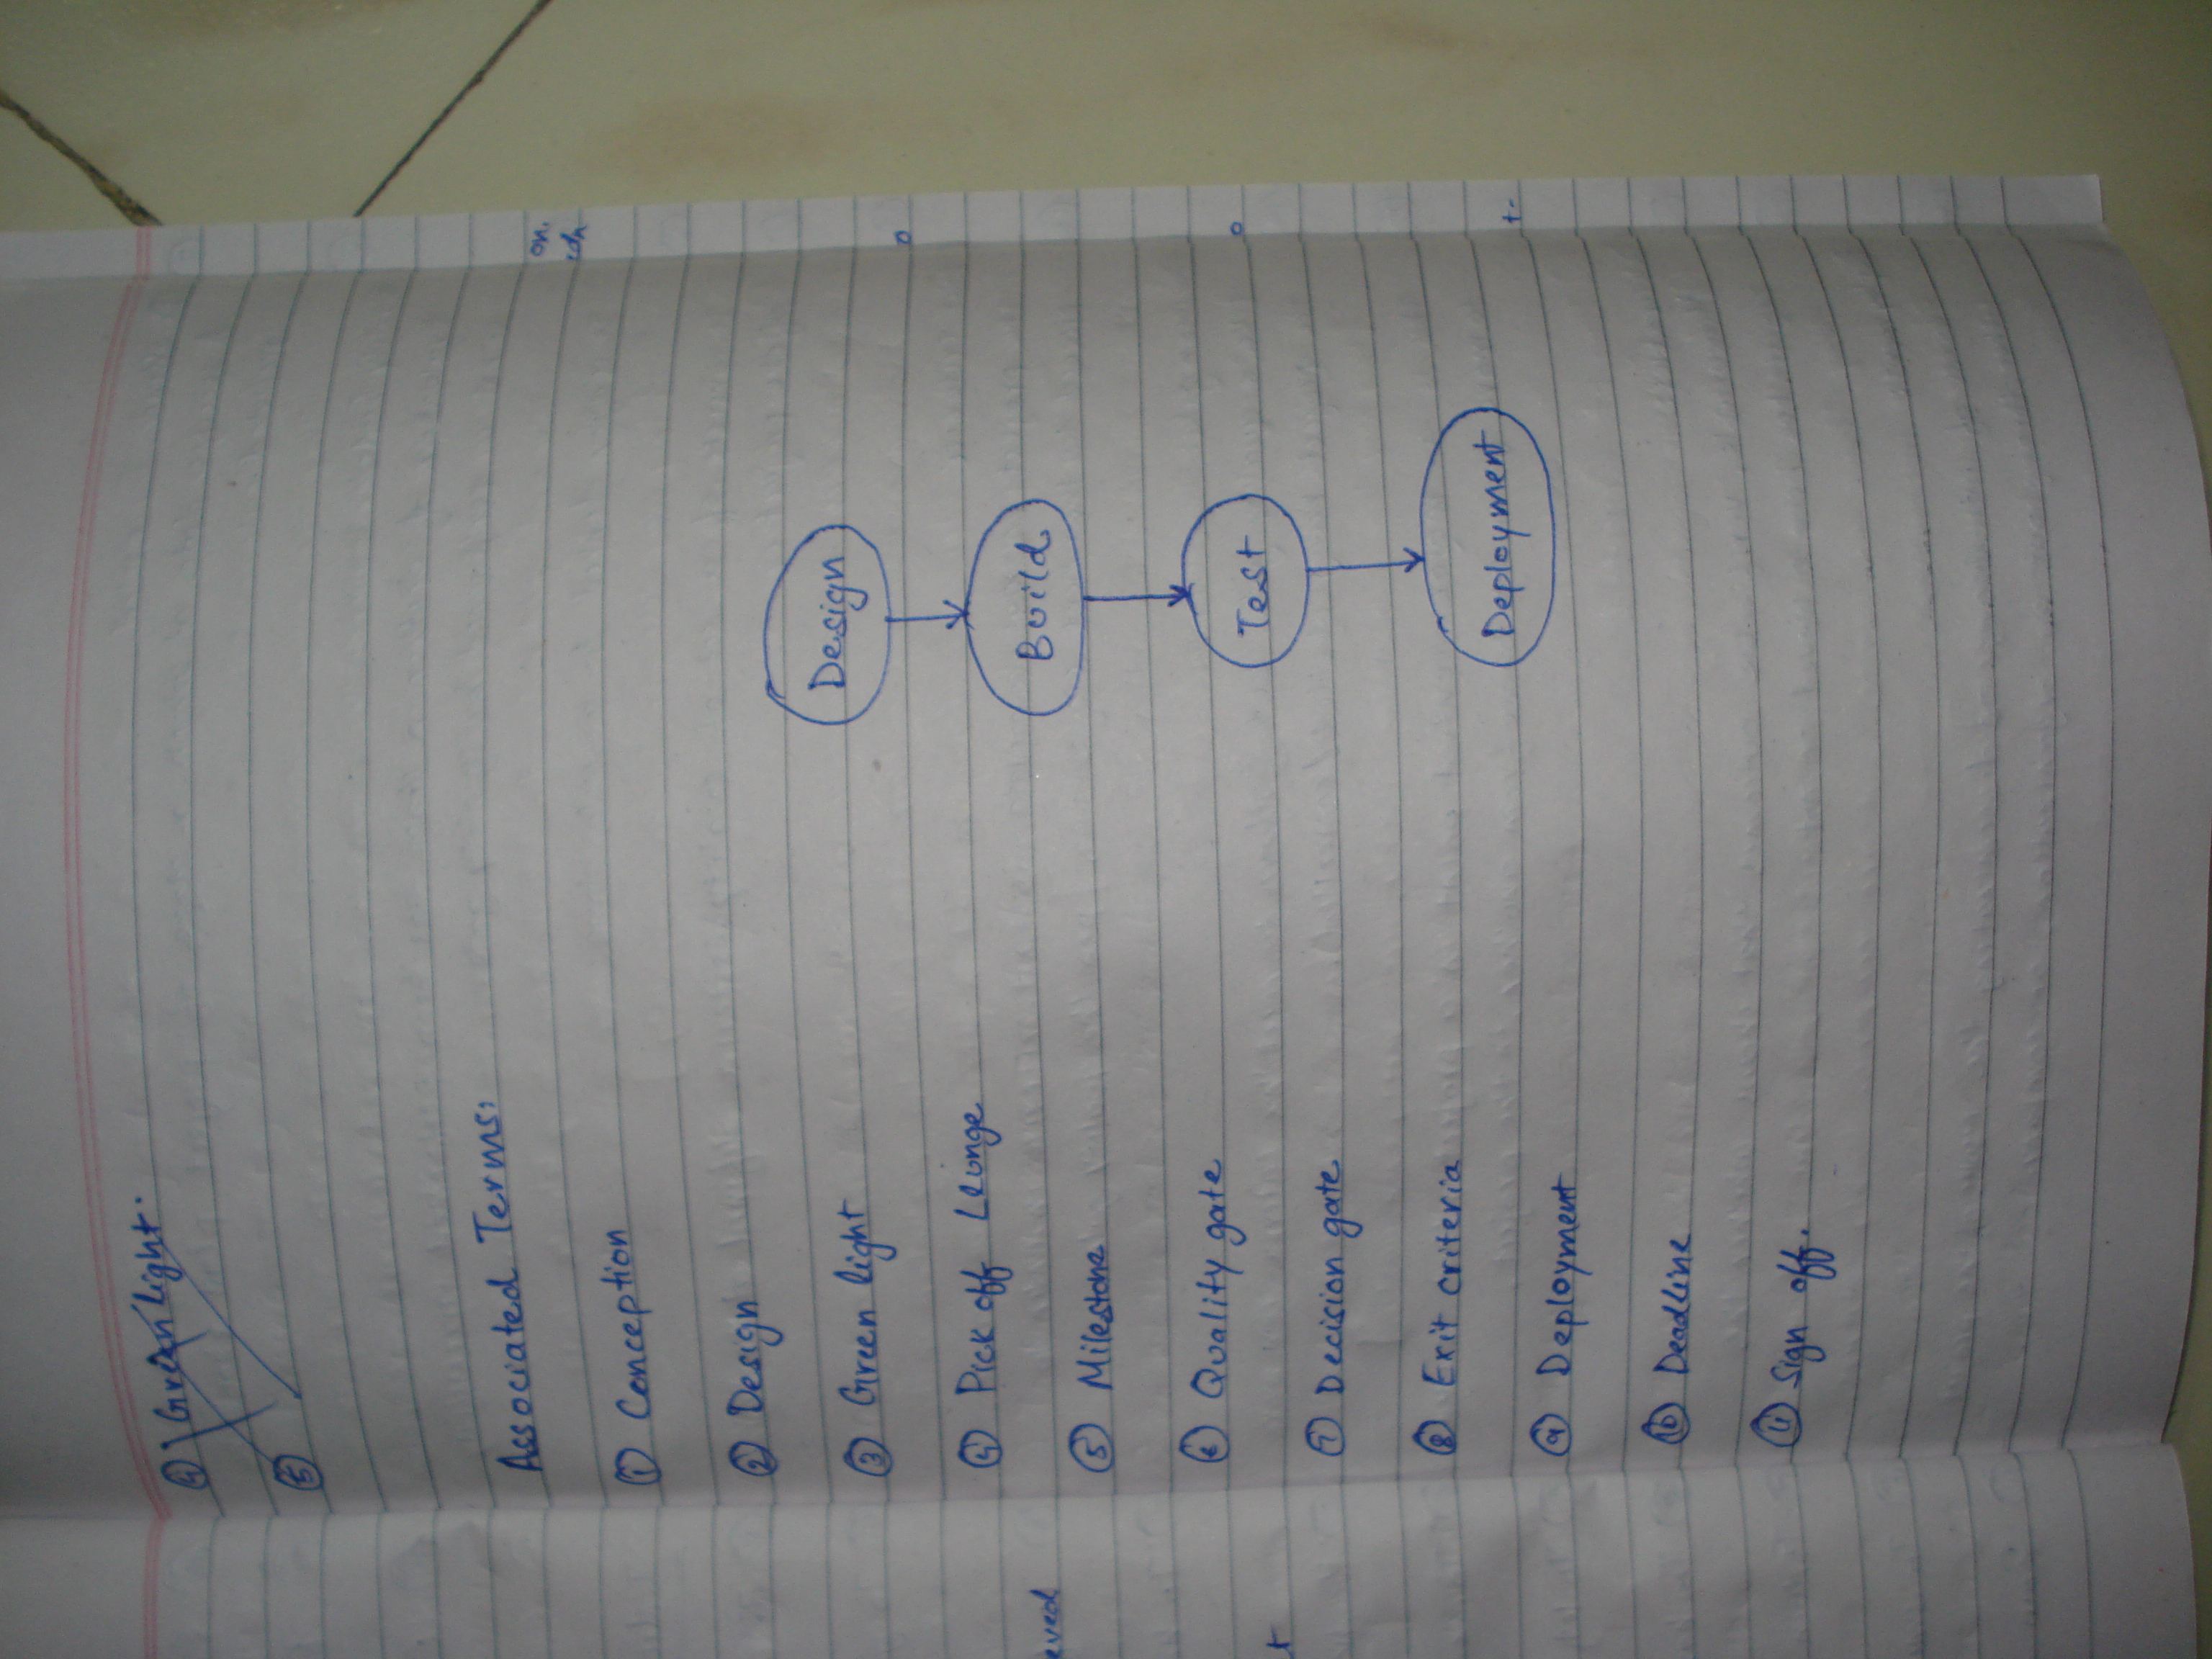 ④ Green light.
⑤
Associated Terms:
① Conception
② Design
③ Green light
④ Pick off Llunge
⑤ Milestone
⑥ Quality gate
⑦ Decision gate
⑧ Exit criteria
⑨ Deployment
⑩ Deadline
⑪ Sign off.
Design
Build
Test
Deployment